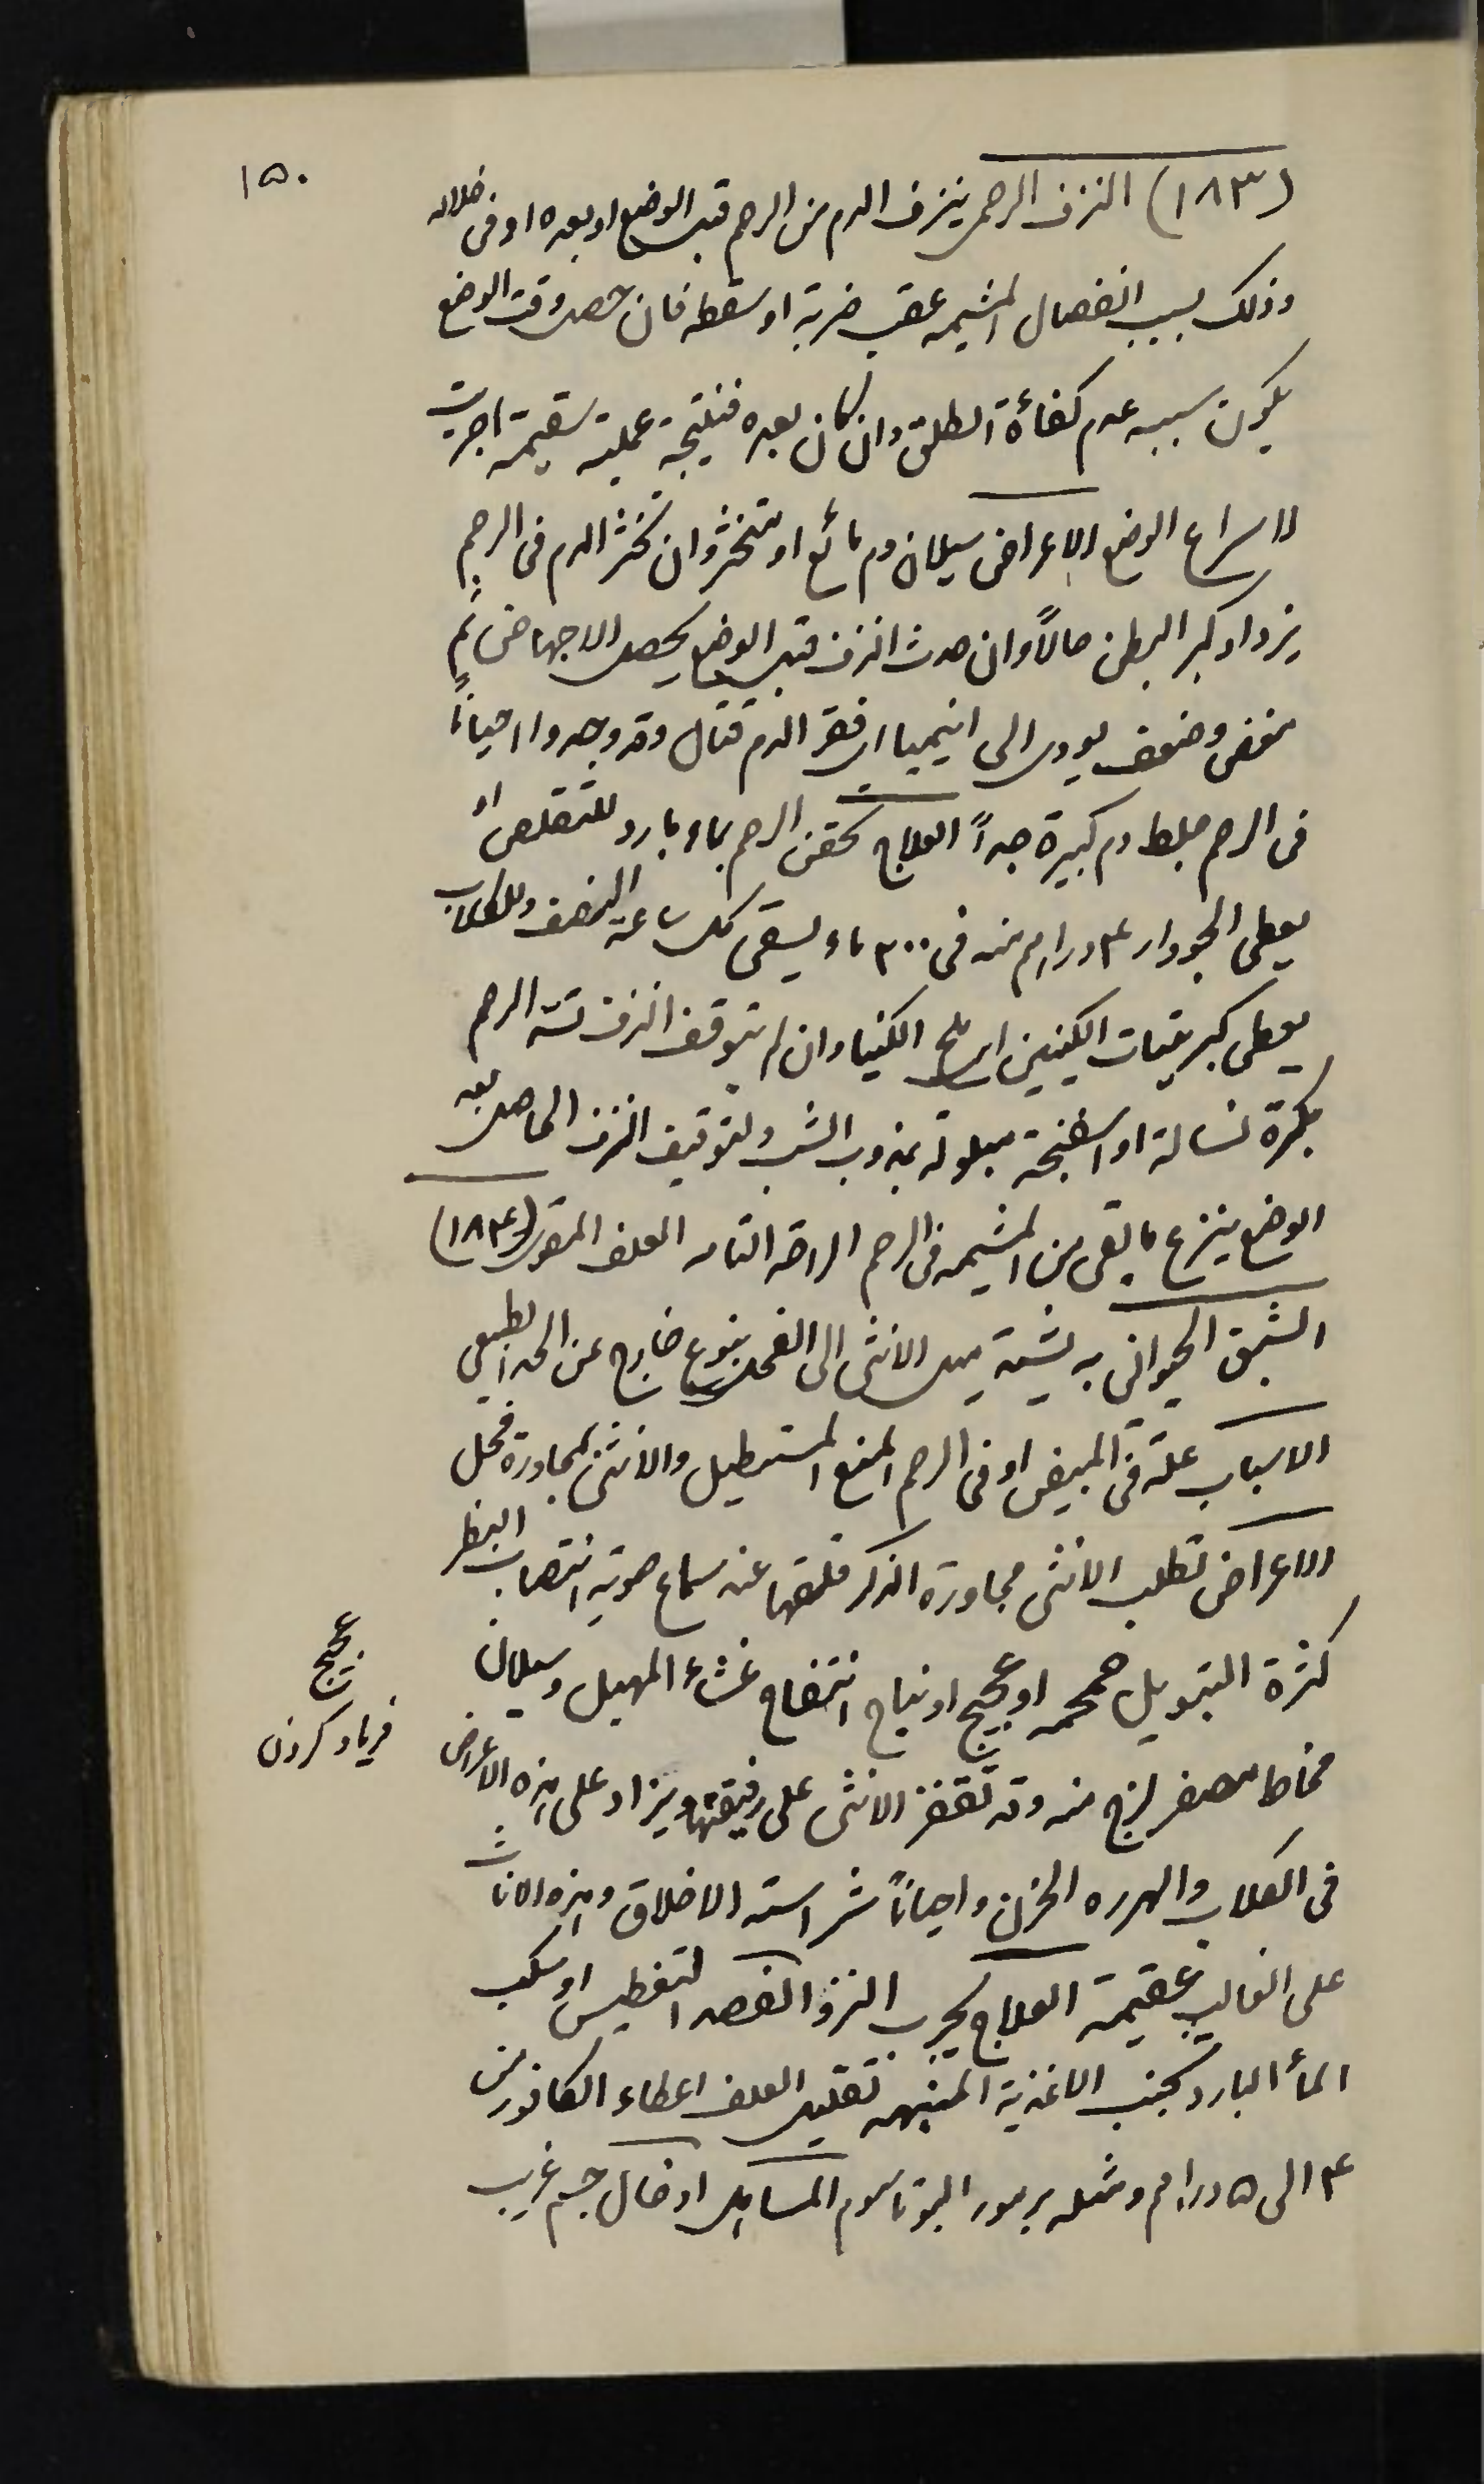 ١٥٠
(١٨٣) النزف الرحمى ينزف الدم من الرحم قبل الوضع او بعده او فى خلاله
وذلك بسبب انفصال المشيمه عقب ضربة او سقطه فان حصل وقت الوضع
يكون سببه عدم كفاءة الطلق وان كان بعده فنتيجة عملية سقيمة اجريت
لاسراع الوضع الاعراض سيلان دم مائع او متخثر وان تخثر الدم فى الرحم
يزداد كبر البطن حالاً وان حدث النزف قبل الوضع يحصل الاجهاض ثم
مغص وضعف يودى الى انيميا اى فقر الدم قتال وقد وجدوا احياناً
فى الرحم جلط دم كبيرة جداً العلاج تحقن الرحم بماء بارد للتقلص او
يعطى الجودار ٤ دراهم منه فى ٣٠٠ ماء يسقى كل ساعة النصف وللكلاب
يعطى كبريتات الكينين اى ملح الكنيا وان لم يتوقف النزف تسد الرحم
بكرة نسالة او اسفنجة مبلولة بمذوب الشب ولتوقيف النزف الحاصل بعد
الوضع ينزع ما بقى من المشيمه فى الرحم الراحة التامه العلف المقوى (١٨٤)
الشبق الحيوانى به يشتد ميل الانثى الى الفحل بنوع خارج عن الحد الطبيعى
الاسباب علة فى المبيض او فى الرحم المنع المستطيل والانثى بمجاورة فحل
الاعراض تطلب الانثى مجاورة الذكر قلقها عند سماع صوته انتصاب البظر
كثرة التبويل حمحمه او عجيج او نباح انتفاخ غشاء المهبل وسيلان
عجيج
فرياد كردن
مخاط مصفر لزج منه وقد تقفز الانثى على رفيقتها ويزاد على هذه الاعراض
فى الكلاب والهرره الحزن واحياناً شراسة الاخلاق وهذه الاناث
على الغالب عقيمة العلاج يجرب النزو الفصد التغطيس او سكب
الماء البارد تجنب الاغذية المنبهه تقليل العلف اعطاء الكافور من
٤ الى ٥ دراهم ومثله برمور البوتاسوم المسائل ادخال جسم غريب